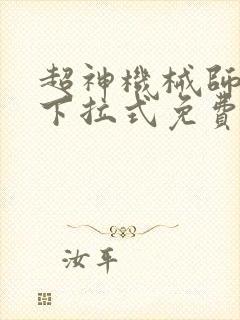 超神機械師
下拉式免費
汝平